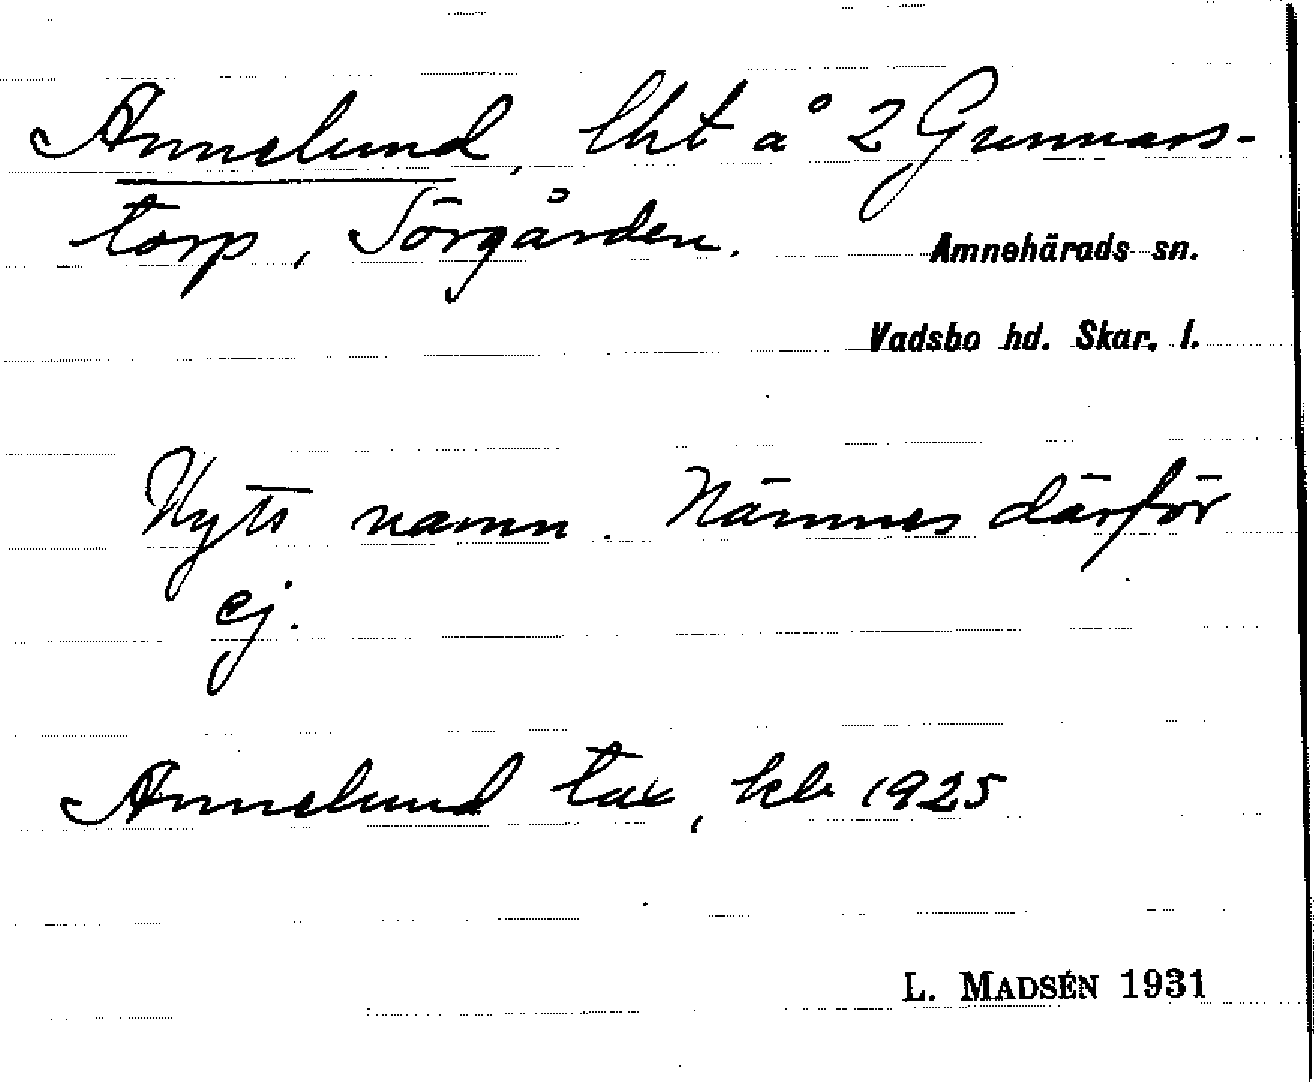 Annelund, lht å 2 Gunnars-
torp, Sörgården.
Amnehärads sn.
Vadsbo hd. Skar. l.
Nytt namn. Nämnes därför
ej.
Annelund tax, kb 1925
L. MADSÉN 1931